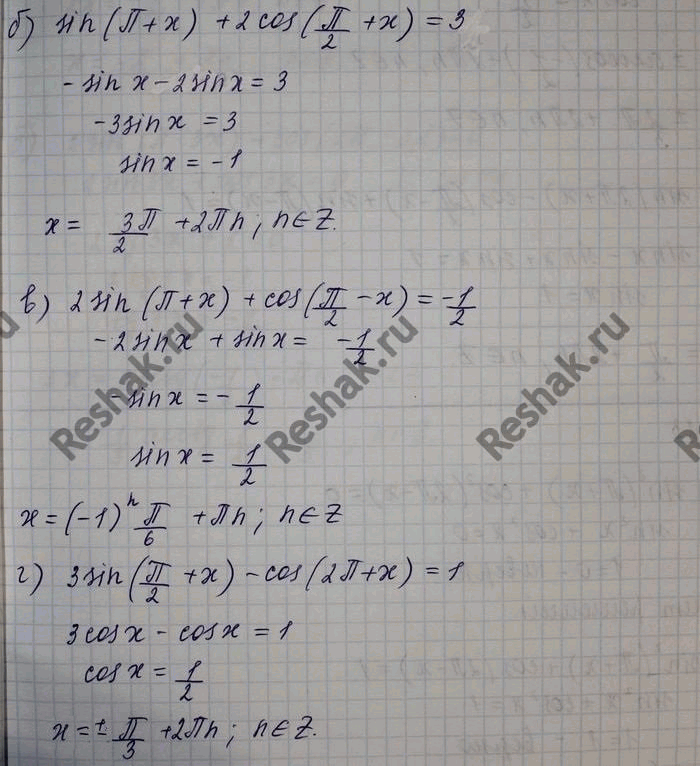 б) sin(П+x) + 2cos(П/2 +x) = 3
-sin x - 2sinx = 3
-3sinx = 3
sinx = -1
x = 3П/2 + 2Пn; n∈Z.
в) 2sin(П+x) + cos(П/2 - x) = -1/2
-2sinx + sinx = -1/2
-sinx = -1/2
sinx = 1/2
x = (-1)^n П/6 + Пn; n∈Z
г) 3sin(П/2 +x) - cos(2П+x) = 1
3cosx - cosx = 1
cosx = 1/2
x = ± П/3 + 2Пn; n∈Z.
Reshak.ru
Reshak.ru
Reshak.ru